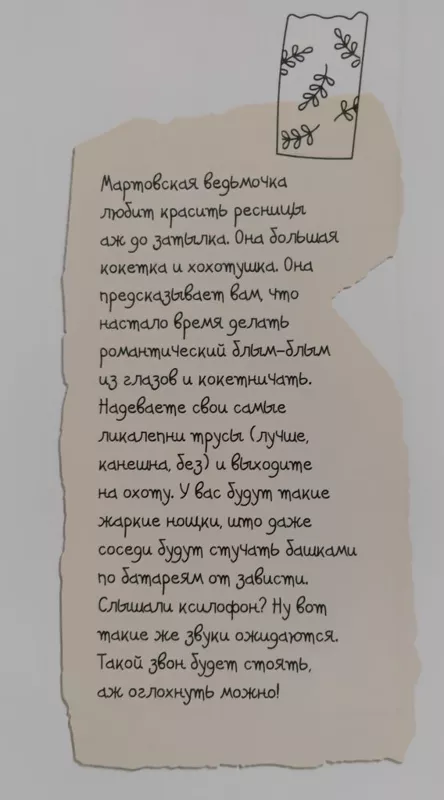 Мартовская ведьмочка
любит красить ресницы
аж до затылка. Она большая
кокетка и хохотушка. Она
предсказывает вам, что
настало время делать
романтический блым-блым
из глазов и кокетничать.
Надеваете свои самые
ликалепни трусы (лучше,
канешна, без) и выходите
на охоту. У вас будут такие
жаркие нощки, што даже
соседи будут стучать башками
по батареям от зависти.
Слышали ксилофон? Ну вот
такие же звуки ожидаются.
Такой звон будет стоять,
аж оглохнуть можно!